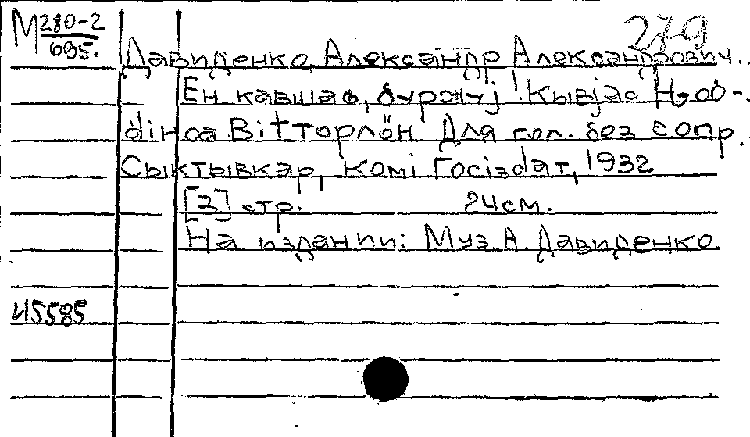 М 280-2
695.
279
Давиденко, Александр Александрович..
Ен кавшав, буржуj! Кывjас
дінса Віттор лӧн. Для гол. без сопр.
Сыктывкар, Комі Госіздат, 1932
[2] стр. 24см.
На издании: Муз А. Давиденко
И5585